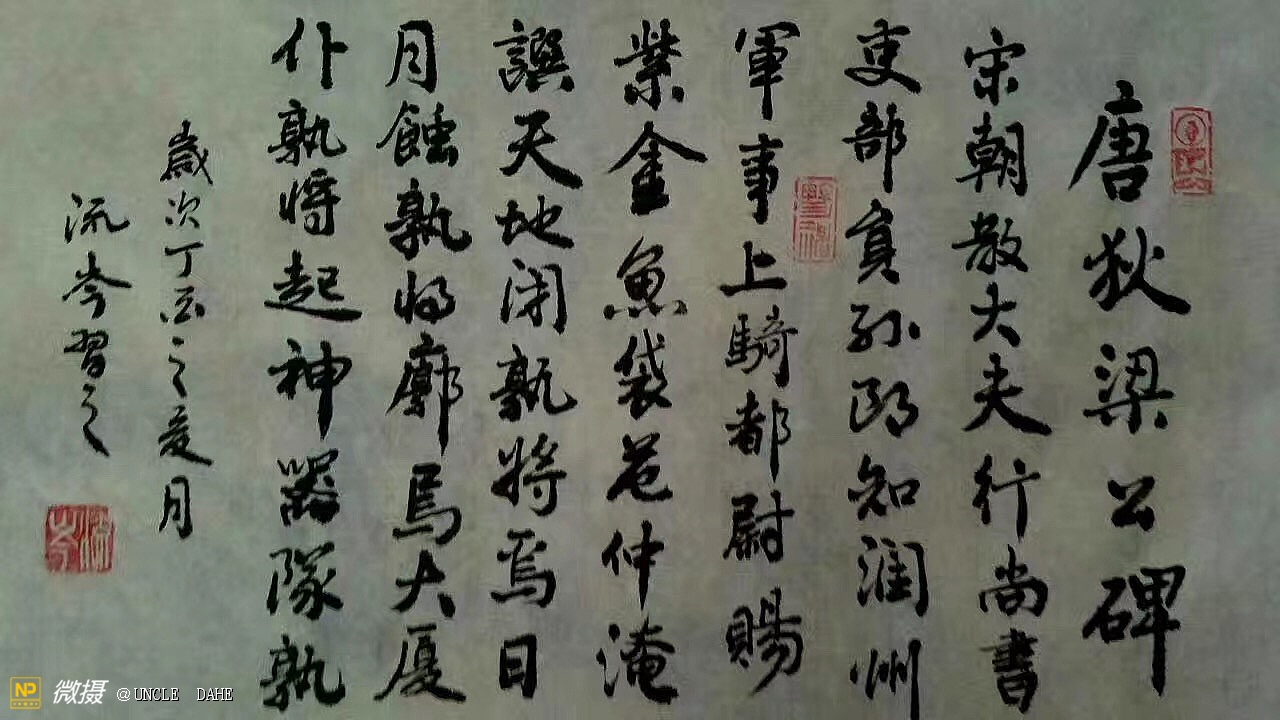 唐狄梁公碑
宋朝散大夫行尚書
吏部員外郎知潤州
軍事上騎都尉賜
紫金魚袋范仲淹
譔天地閇孰將焉日
月蝕孰将廓焉大厦
仆孰将起神器隊孰
歲次丁酉之夏月
流岑習之
NP 微摄 @UNCLE DAHE